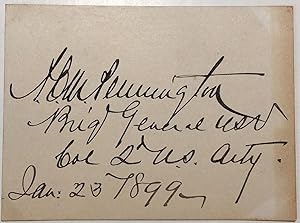 A.C.M. Pennington
Brig General USV
Col 2d U.S. Arty.
Jan: 23 1899